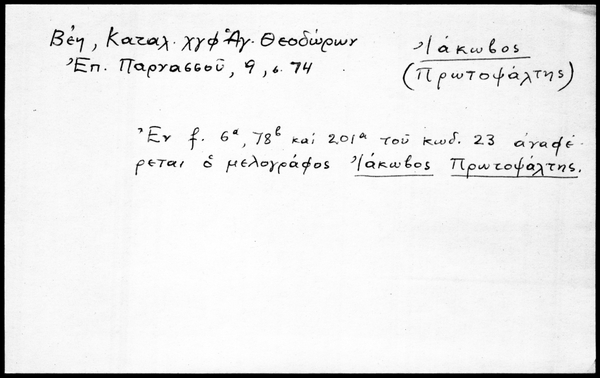 Βέη, Καταλ. χγφ Ἁγ. Θεοδώρων
Ἐπ. Παρνασσοῦ, 9, σ. 74
Ἰάκωβος
(Πρωτοψάλτης)
Ἐν f. 6ᵃ, 78ᵇ καί 201ᵃ τοῦ κωδ. 23 ἀναφέ-
ρεται ὁ μελογράφος Ἰάκωβος Πρωτοψάλτης.